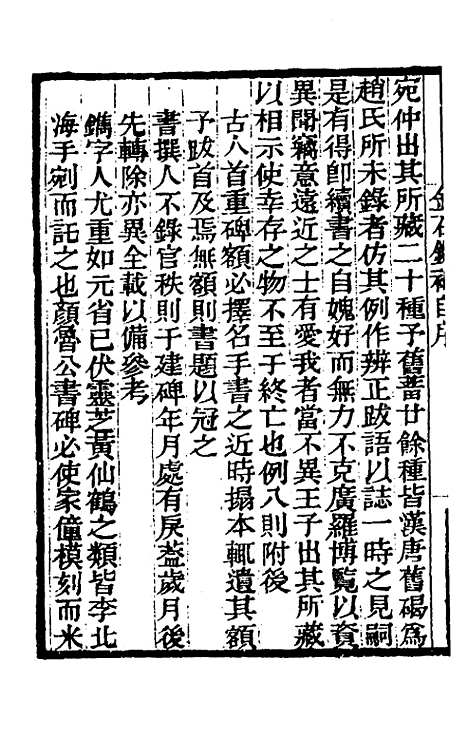 金石録補自序
宛仲出其所藏二十種予舊蓄廿餘種皆漢唐舊碣爲
趙氏所未錄者仿其例作辨正跋語以誌一時之見嗣
是有得卽續書之自媿好而無力不克廣羅博覽以資
異聞竊意遠近之士有愛我者當不異王子出其所藏
以相示使幸存之物不至于終亡也例八則附後
古人首重碑額必擇名手書之近時搨本輒遺其額
予跋首及焉無額則書題以冠之
書撰人不錄官秩則于建碑年月處有戾葢歲月後
先轉除亦異全載以備參考
鐫字人尤重如元省已伏靈芝黃仙鶴之類皆李北
海手剜而託之也顏魯公書碑必使家僮模刻而米